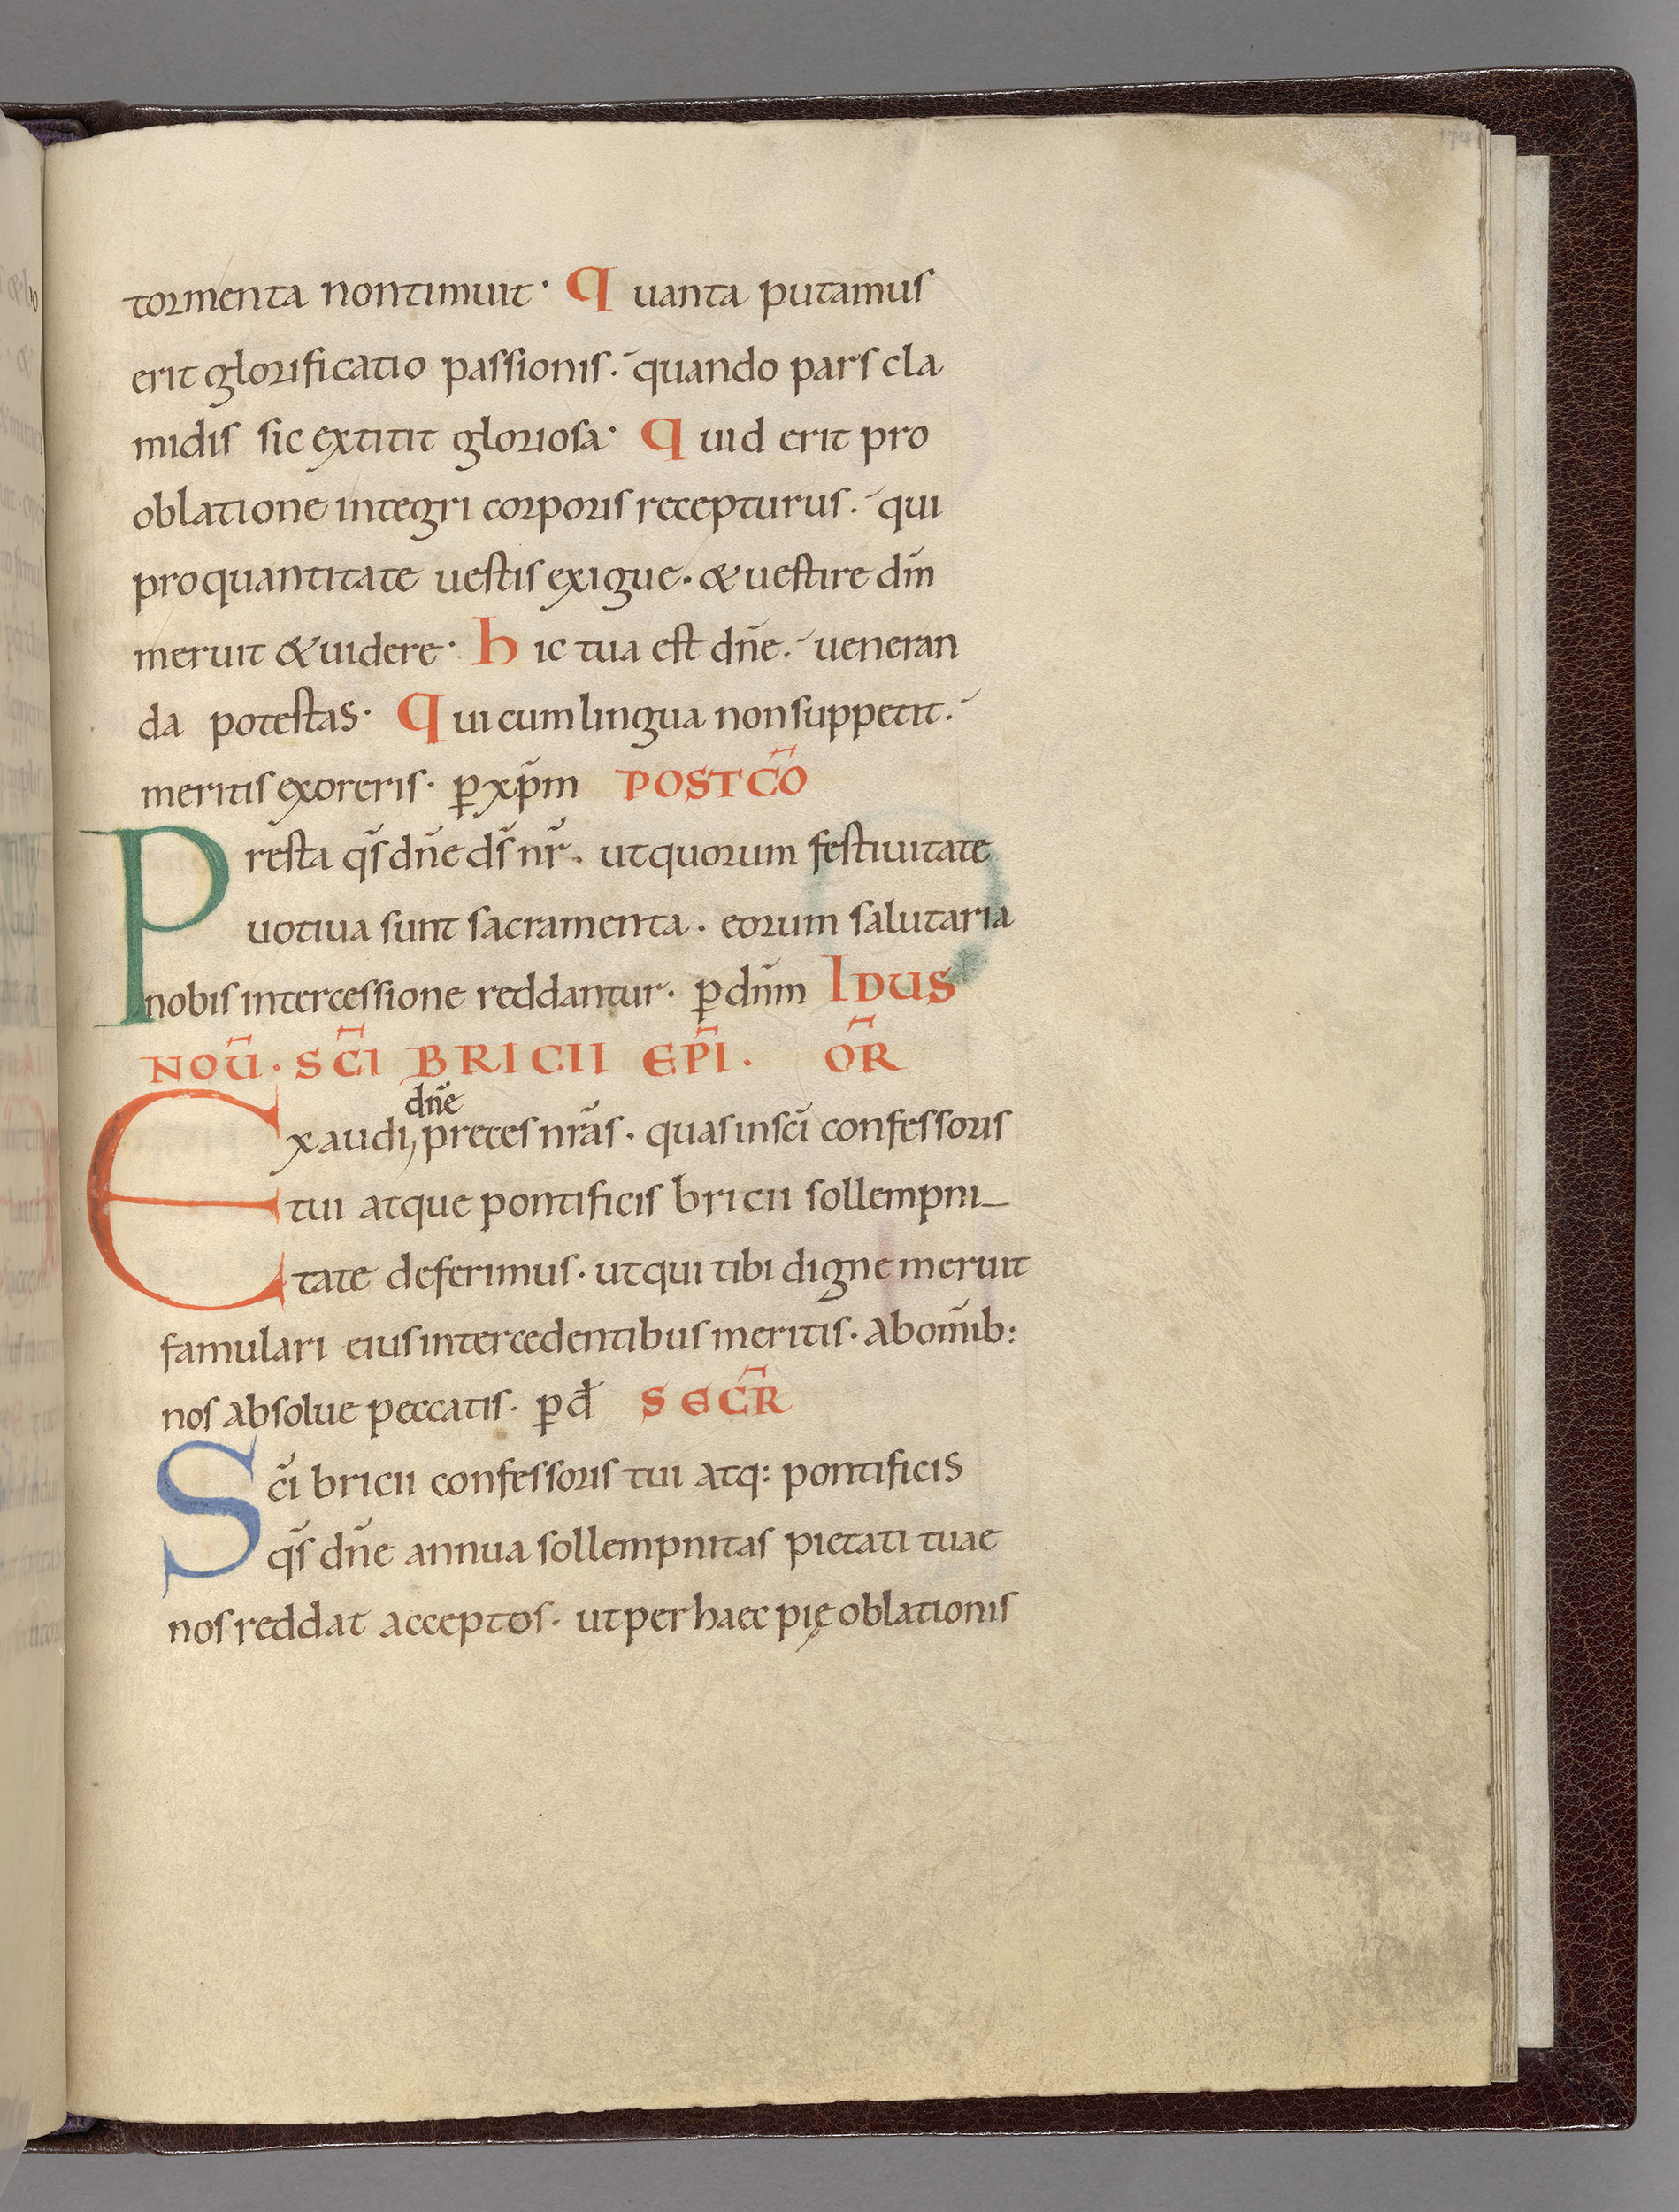 tormenta non timuit · Quanta putamus
erit glorificatio passionis. quando pars cla
midis sic extitit gloriosa · Quid erit pro
oblatione integri corporis recepturus. qui
pro quantitate uestis exigue. & uestire dn̄m
meruit & uidere · hic tua est dn̄e. ueneran
da potestas · Qui cum lingua non suppetit.
meritis exoreris · ꝑ xp̄m POST CŌ
Presta qs̄ dn̄e ds̄ nr̄. ut quorum festiuitate
uotiua sunt sacramenta. eorum salutaria
nobis intercessione reddantur · ꝑ dn̄m IDUS
NOŪ · SC̄I BRICII EP̄I. OR̄
dn̄e
Exaudi, preces nr̄as · quas in sc̄i confessoris
tui atque pontificis bricii sollempni-
tate deferimus · ut qui tibi digne meruit
famulari eius intercedentibus meritis · ab om̄ib:
nos absolue peccatis · ꝑ đ SECR̄
Sc̄i bricii confessoris tui atq: pontificis
qs̄ dn̄e annua sollempnitas pietati tuae
nos reddat acceptos · ut per haec pię oblationis